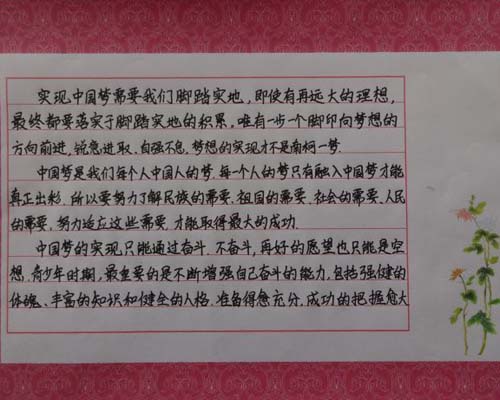 实现中国梦需要我们脚踏实地,即使有再远大的理想,
最终都要落实于脚踏实地的积累,唯有一步一个脚印向梦想的
方向前进,锐意进取.自强不息,梦想的实现才不是南柯一梦.
中国梦是我们每个人中国人的梦.每个人的梦只有融入中国梦才能
真正出彩.所以要努力了解民族的需要.祖国的需要.社会的需要.人民
的需要,努力适应这些需要.才能取得最大的成功.
中国梦的实现只能通过奋斗.不奋斗,再好的愿望也只能是空
想.青少年时期,最重要的是不断增强自己奋斗的能力.包括强健的
体魄、丰富的知识和健全的人格.准备得愈充分.成功的把握愈大